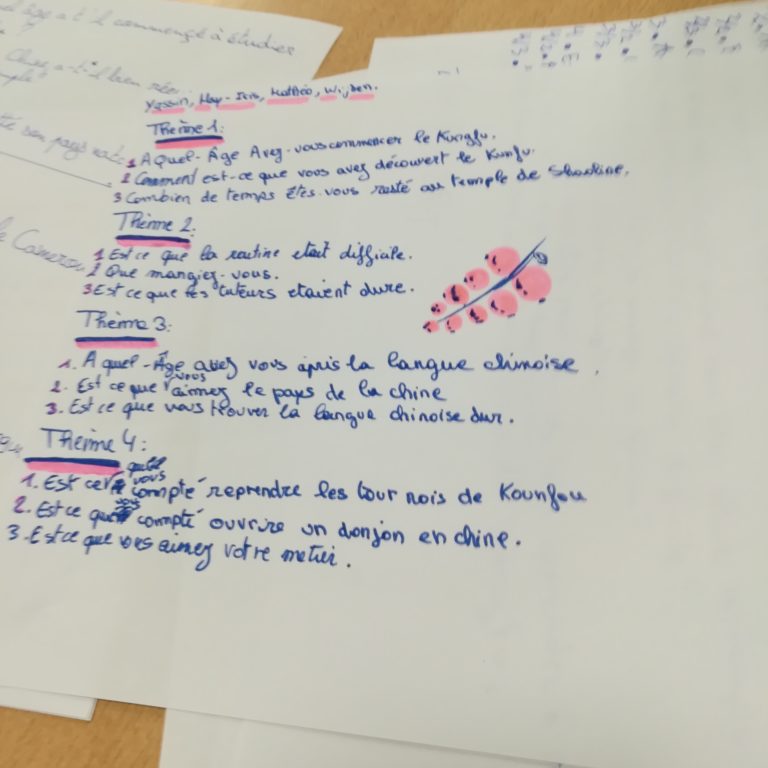 el âge a t'il commencé à étudier
Yassin, May-Iris, Mathéo, Wijden.
Thème 1:
1 A Quel-Âge Avez-vous commencer le Kungfu.
2 Comment est-ce que vous avez découvert le Kunfu.
3 Combien de temps êtes-vous resté au temple de Shaoline.
Thème 2:
1 Est ce que la routine etait difficile.
2 Que mangiez-vous.
3 Est ce que les tuteurs etaient dure.
Thème 3:
1. A quel-Âge avez vous apris la langue chinoise.
2. Est ce que vous aimez le pays de la chine
3. Est ce que vous trouver la langue chinoise dur.
Thème 4:
1. Est ce que vous compté reprendre les tournois de Kounfou
2. Est ce que vous compté ouvrire un donjon en chine.
3. Est ce que vous aimez votre metier.